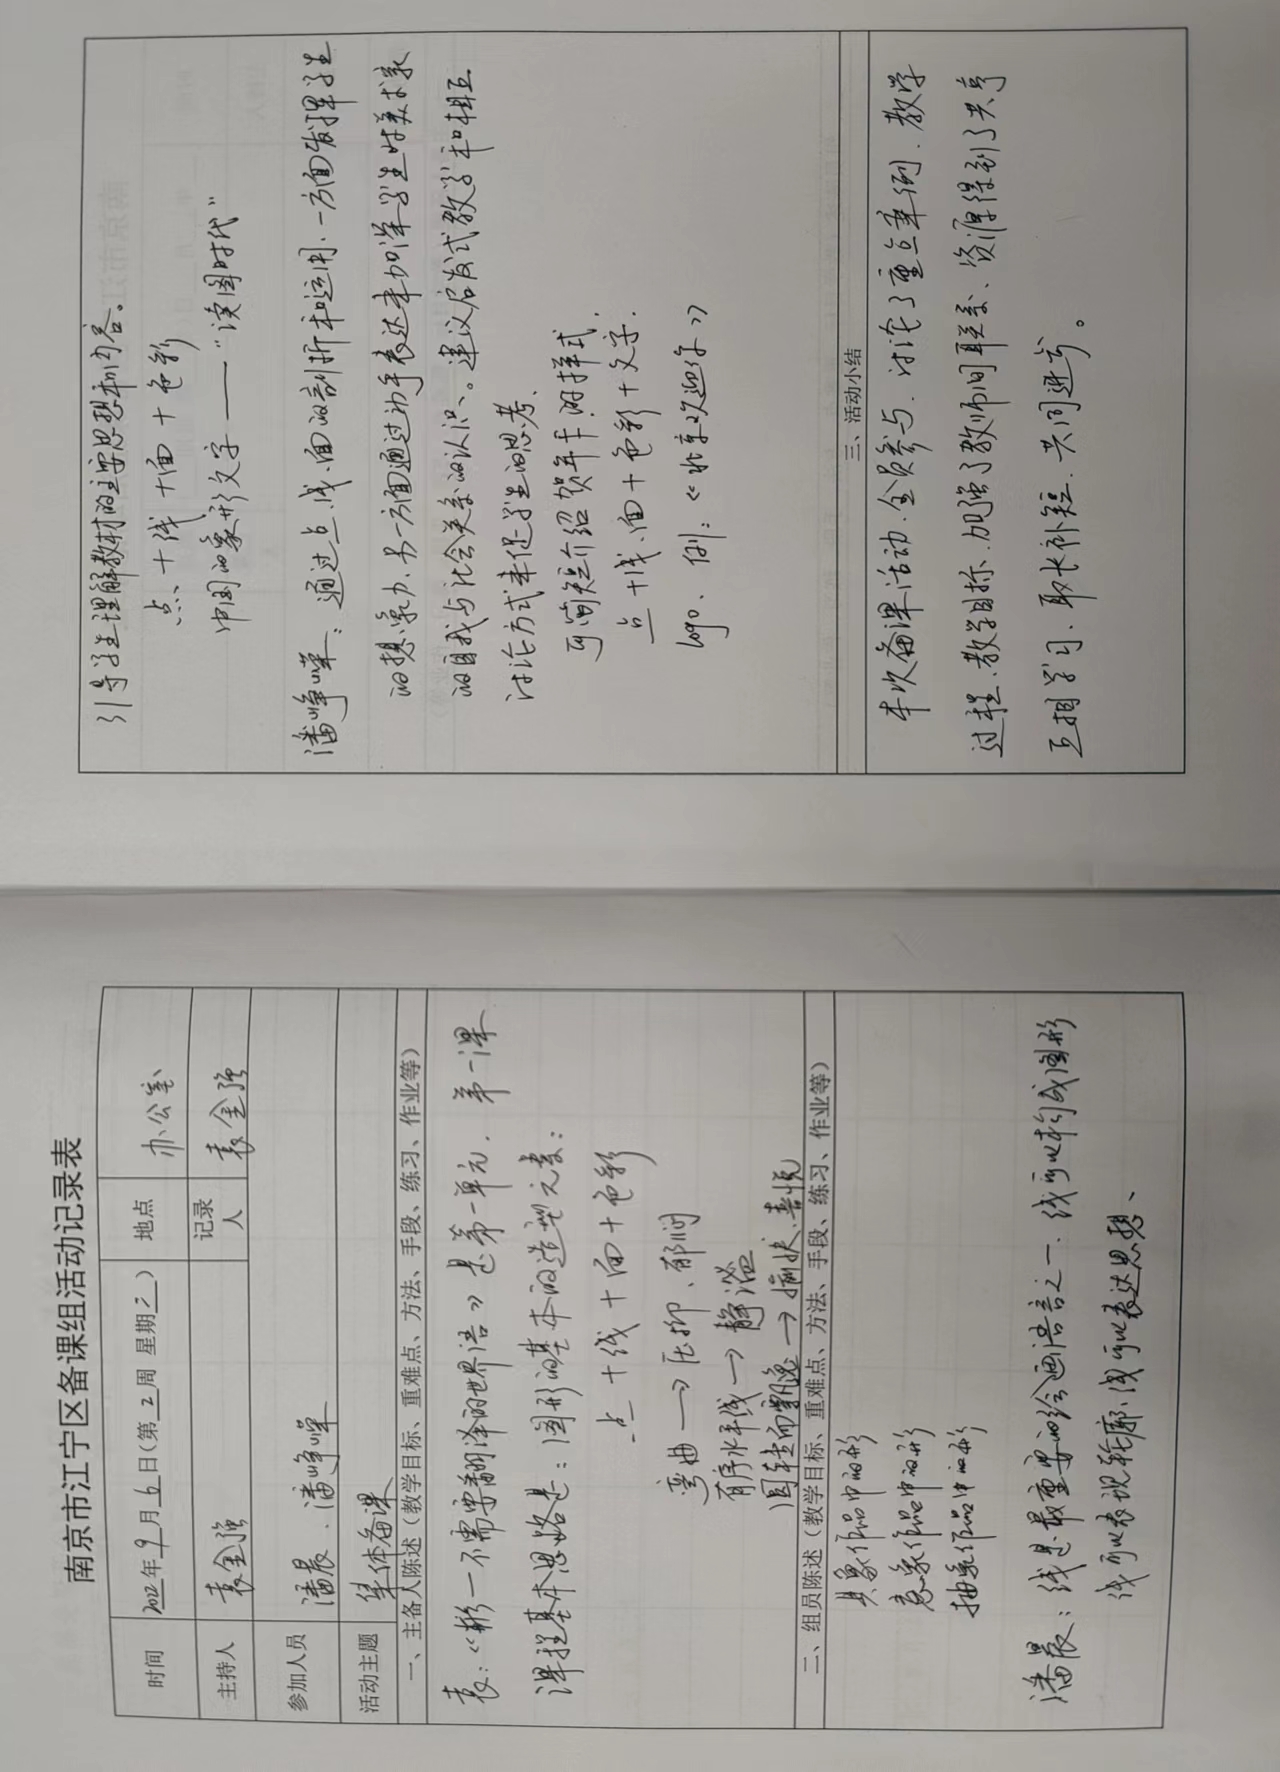 南京市江宁区备课组活动记录表
时间 2022年9月6日(第2周 星期三) 地点 办公室
主持人 袁金强 记录人 袁金强
参加人员 潘晨、潘峥嵘
活动主题 集体备课
一、主备人陈述（教学目标、重难点、方法、手段、练习、作业等）
袁：《形一不需要翻泽的世界语》是第一单元．第一课
课程基本思路是：图形的基本的造型元素：
点＋线＋面＋色彩
弯曲→压抑、郁闷
有序水平线→静谧
圆转而飘逸→愉快、喜悦
二、组员陈述（教学目标、重难点、方法、手段、练习、作业等）
具象作品中的形
意象作品中的形
抽象作品中的形
潘晨：线是最重要的绘画语言之一．线可以构成图形
线可以表现轮廓、线可以表达思想、
引导学生理解教材的主要思想和内容。
点＋线＋面＋色彩
中国的象形文字——“读图时代”
潘峥嵘：通过点、线、面的剖析和运用、一方面发挥学生
的想象力、另一方面通过动手表达来加深学生对美术家
的自我与社会关系的认识、。建议启发式教学和相互
讨论方式来促学生的思考．
可简短介绍贺年卡的样式．
点＋线、面＋色彩＋文字．
logo、例：《北京欢迎你》
三、活动小结
本次备课活动、全员参与、讨论了重点案例、教学
过程、教学目标、加强了教师间联系、资源得到了共享
互相学习、取长补短、共同进步。